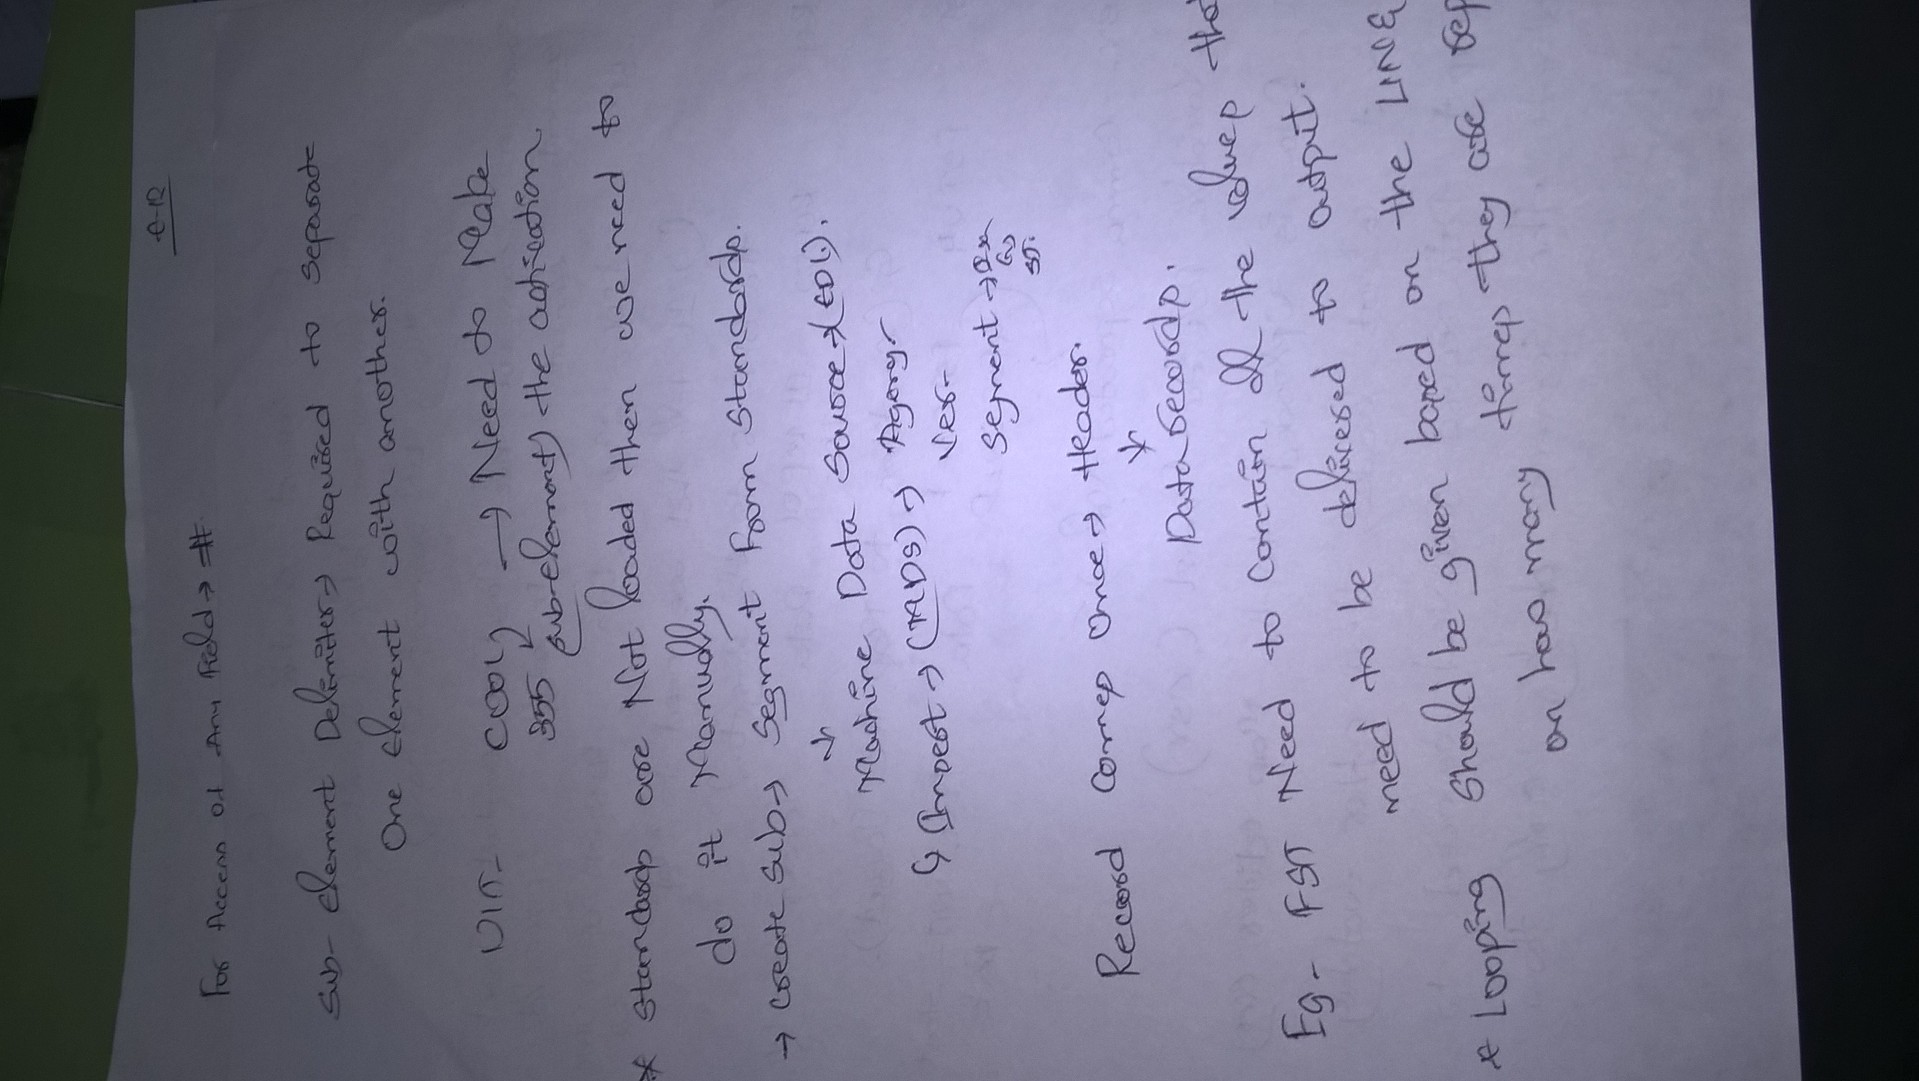 For Access of Any Field → #.
Sub-Element Delimiter → Required to separate
One Element with another.
C001 → Need to Make
355 → sub-element the
* Standards are Not loaded then we need to
do it Manually.
→ Create Sub → Segment from Standards.
↓
Machine Data Source (EDI).
↳ → (MDS) → Agency
Ver-
Segment →
ST.
Record Comes Once → Header.
↓
Data records.
Eg- FST Need to Contain all the values that
need to be delivered to output.
* Looping should be given based on the LINE
on how many times they are rep